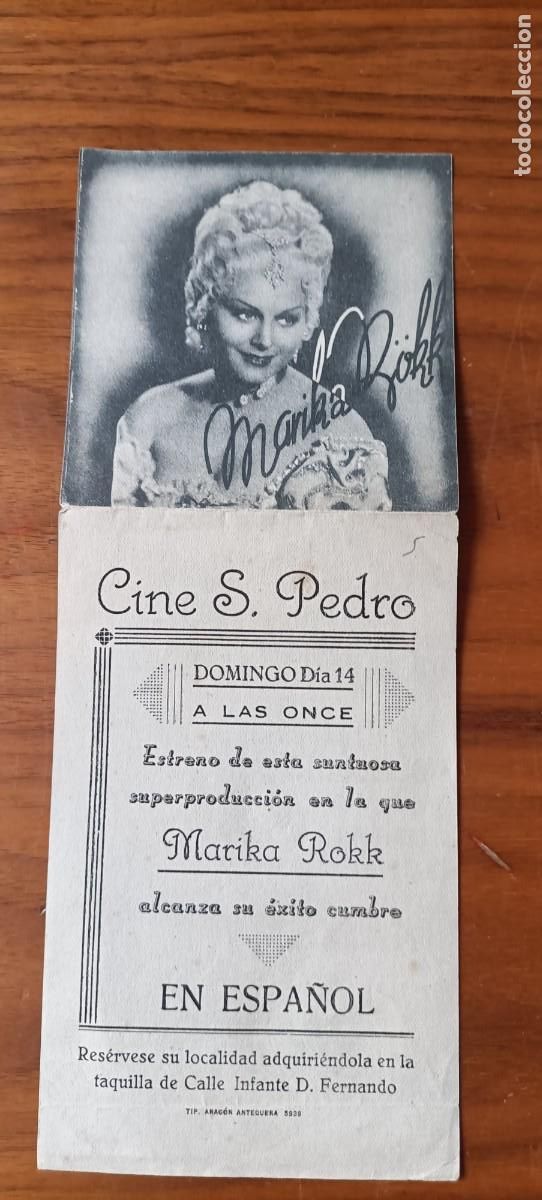 todocoleccion
Marika Rökk
Cine S. Pedro
DOMINGO Día 14
A LAS ONCE
Estreno de esta suntuosa
superproducción en la que
Marika Rokk
alcanza su éxito cumbre
EN ESPAÑOL
Resérvese su localidad adquiriéndola en la
taquilla de Calle Infante D. Fernando
TIP. ARAGÓN ANTEQUERA 5939